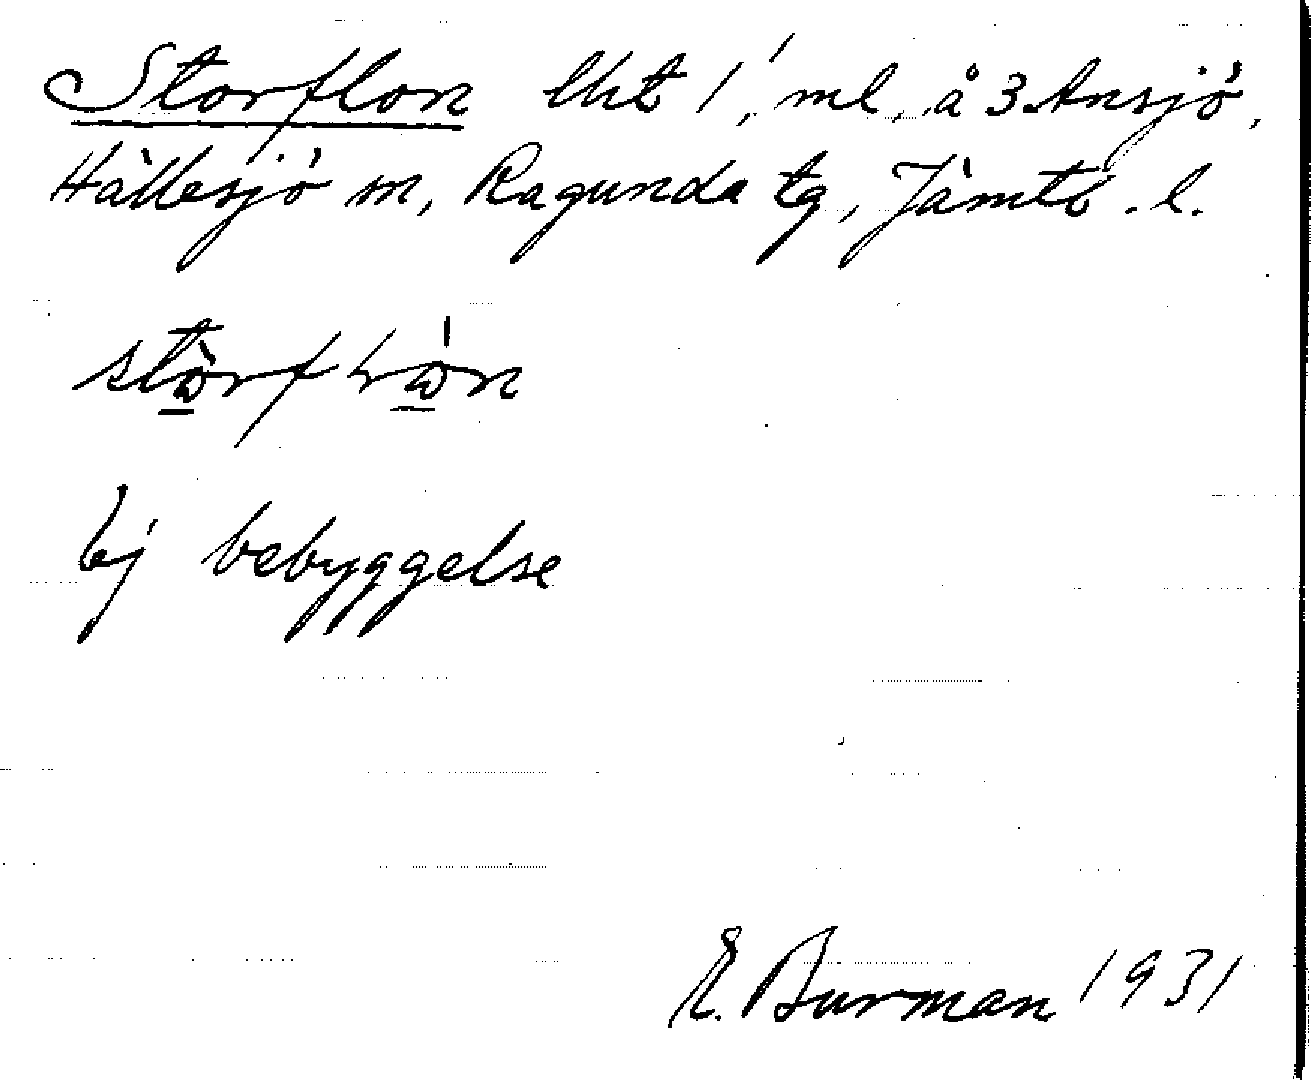 Storflon lht 1, ml. å 3 Ansjö,
Hällesjö sn, Ragunda tg, Jämtl. l.
Ej bebyggelse
E. Burman 1931